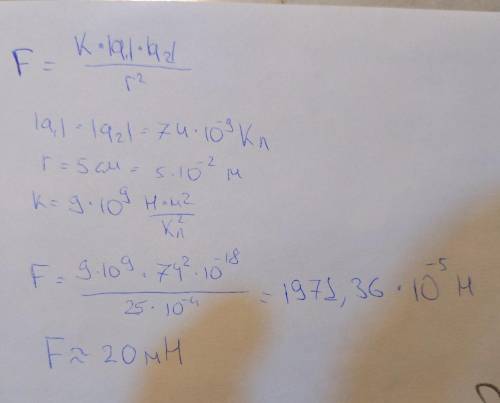 F = K·|q₁|·|q₂| / r²
|q₁| = |q₂| = 74·10⁻⁹ Кл
r = 5 см = 5·10⁻² м
k = 9·10⁹ Н·м² / Кл²
F = 9·10⁹·74²·10⁻¹⁸ / 25·10⁻⁴ = 1971,36·10⁻⁵ Н
F ≈ 20 мН